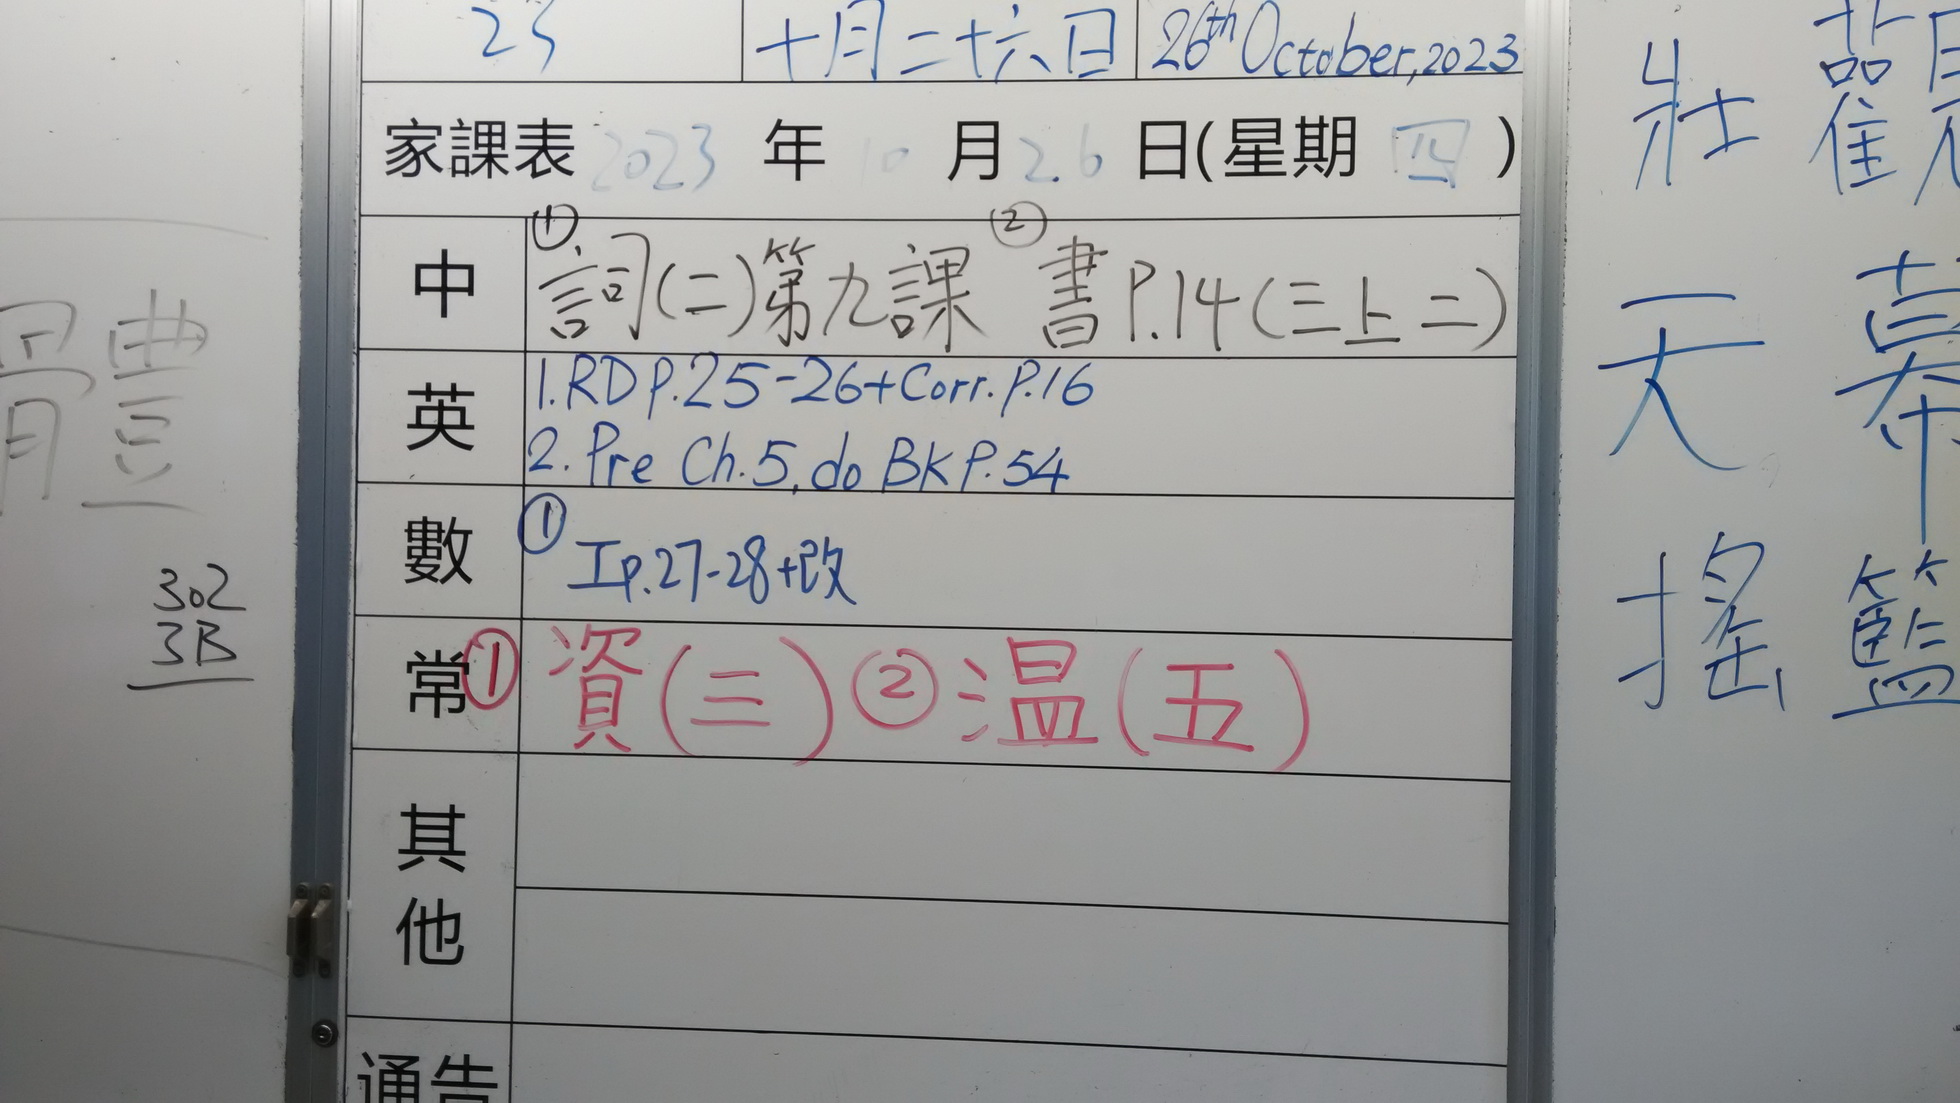 十月二十六日 26th October, 2023
家課表 2023 年 10 月 26 日(星期 四 )
中 ① 詞(二)第九課 ② 書P.14(三上二)
英 1.RD P.25-26+Corr. P.16
2. Pre Ch.5, do BK P.54
數 ① 工p.27-28+改
常 ① 資(三) ② 溫(五)
其他
通告
體
302
3B
壯觀
天幕
搖籃